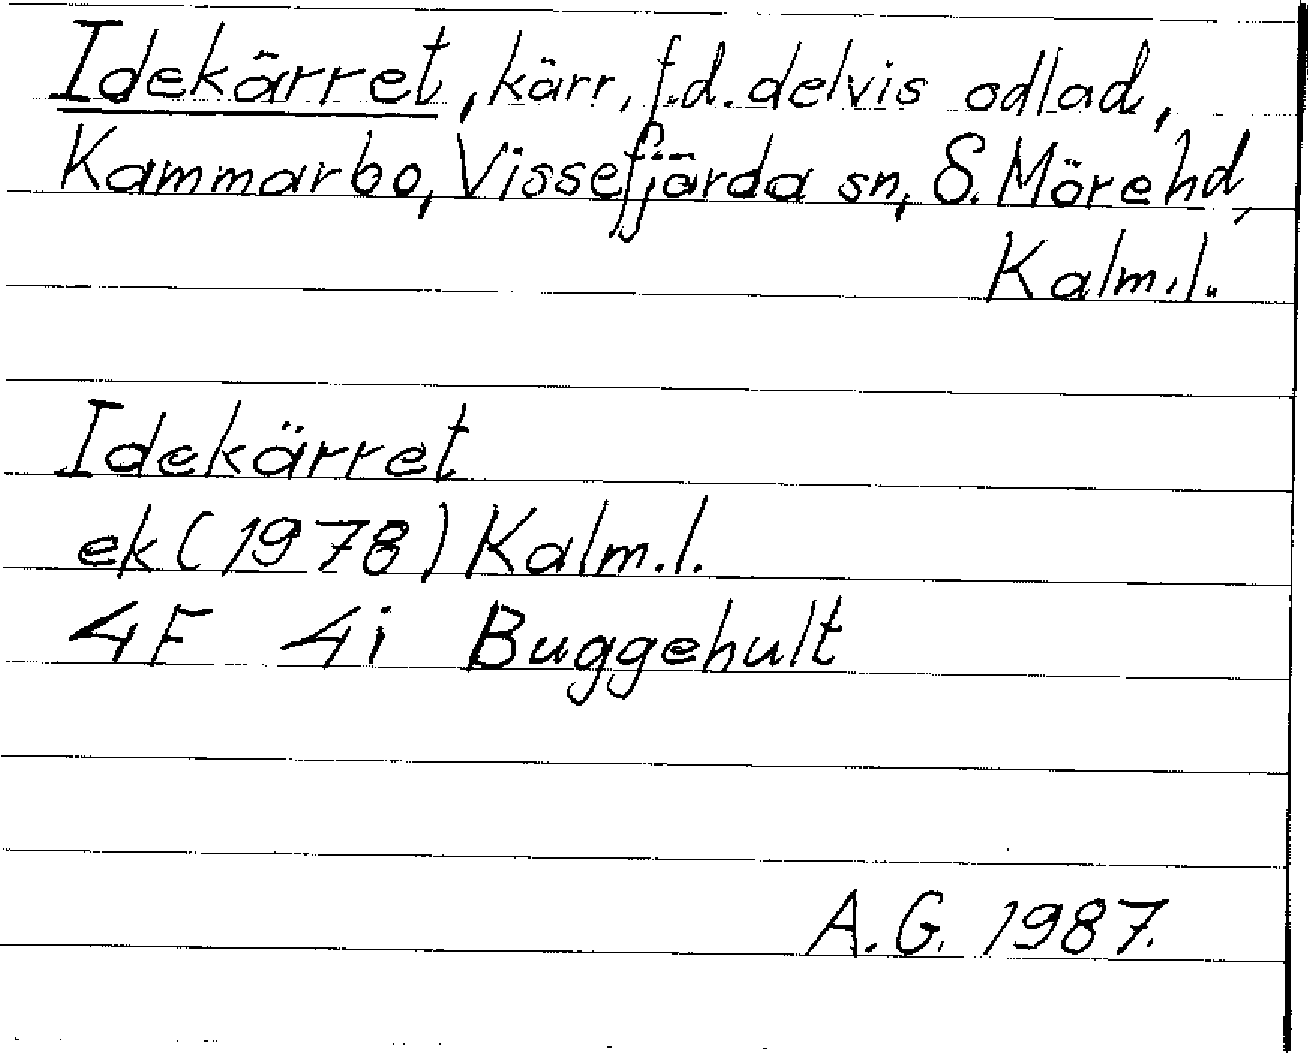 Idekärret, kärr, f.d. delvis odlad,
Kammarbo, Vissefjärda sn, S. Möre hd,
Kalm.l.
Idekärret
ek (1978) Kalm.l.
4F 4i Buggehult
A.G. 1987.